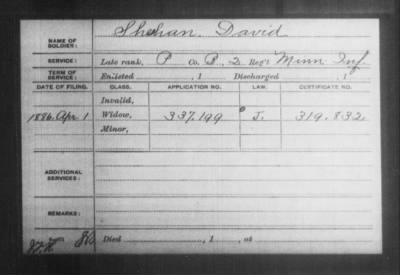 NAME OF SOLDIER: Shehan, David
SERVICE: Late rank, P Co. B, 2 Reg't Minn Inf.
TERM OF SERVICE: Enlisted , 1 Discharged , 1
DATE OF FILING. CLASS. APPLICATION NO. LAW. CERTIFICATE NO.
Invalid,
1886. Apr. 1 Widow, 337.199 J. 319.832
Minor,
ADDITIONAL SERVICES:
REMARKS:
Died , 1 , at